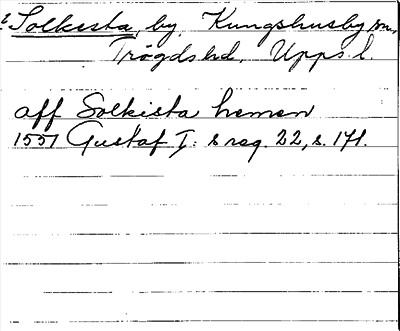 Solkista, by, Kungshusby sn,
Trögds hd, Upps. l.
aff Solkista hemen
1551 Gustaf I:s reg. 22, s. 171.